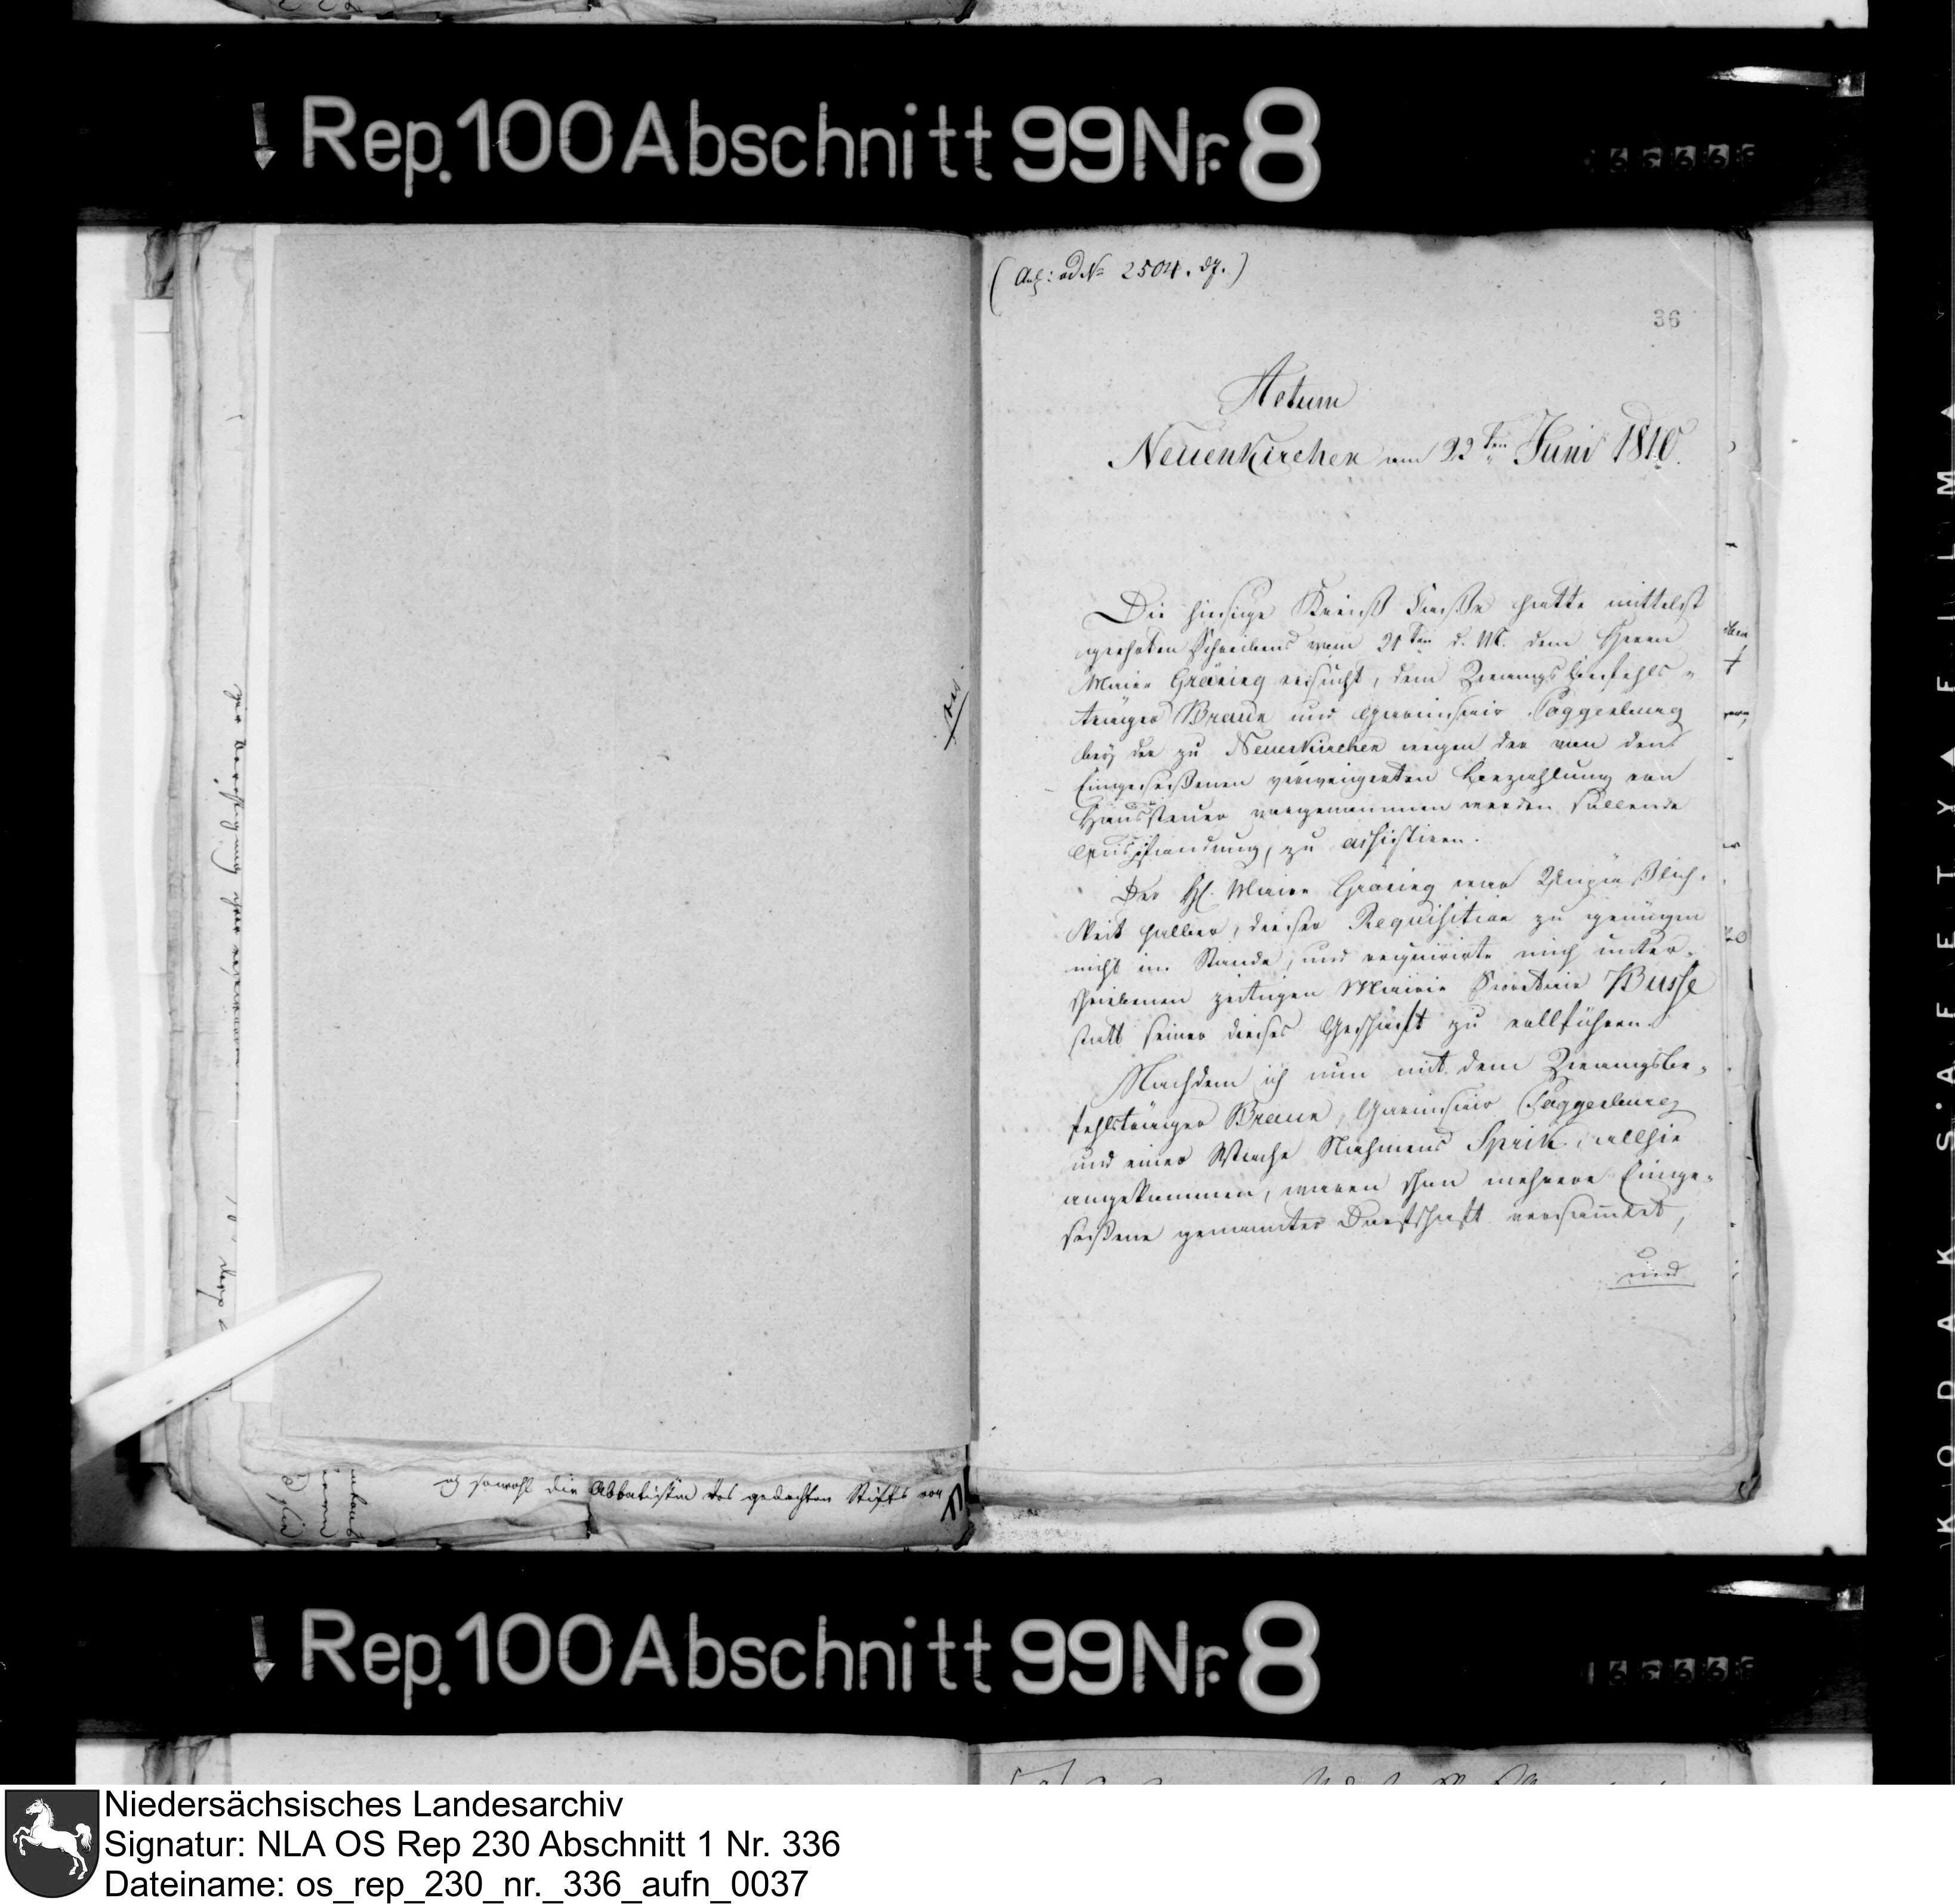 Rep. 100 Abschnitt 99 Nr. 8
(Anl: ad № 2504. dJ.)
36
Actum
Neuenkirchen am 22ten Juni 1810.
Die hiesige Kreiß Casse hatte mittelst
geehrten Schreibens vom 21ten d. M. dem Herrn
Maire Gräving ersucht, dem Zwangsbefehls-
träger Braun und Garnisair Poggenburg
bey der zu Neuenkirchen wegen der von dens
Eingeseßenen verweigerten Bezahlung von
Haussteuer vorgenommen werden sollende
Auspfandung, zu assistiren.
Der H. Maire Gräving war Unpäßlich-
keit halber, dieser Requisition zu genügen
nicht im Stande, und requirirte mich unter-
schriebenen zeitigen Mairie Secretair Busse
statt seiner dieses Geschäft zu vollführen.
Nachdem ich nun mit dem Zwangsbe-
fehlsträger Braun, Garnisair Poggenburg
und einer Wache Nahmens Sprik, allhie
angekommen, waren schon mehrere Einge-
seßene genannter Dorfschaft versammlet,
und
sowohl die Abbatissin des gedachten Stifts von
Rep. 100 Abschnitt 99 Nr. 8
KODAK · SAFETY FILM
Niedersächsisches Landesarchiv
Signatur: NLA OS Rep 230 Abschnitt 1 Nr. 336
Dateiname: os_rep_230_nr._336_aufn_0037